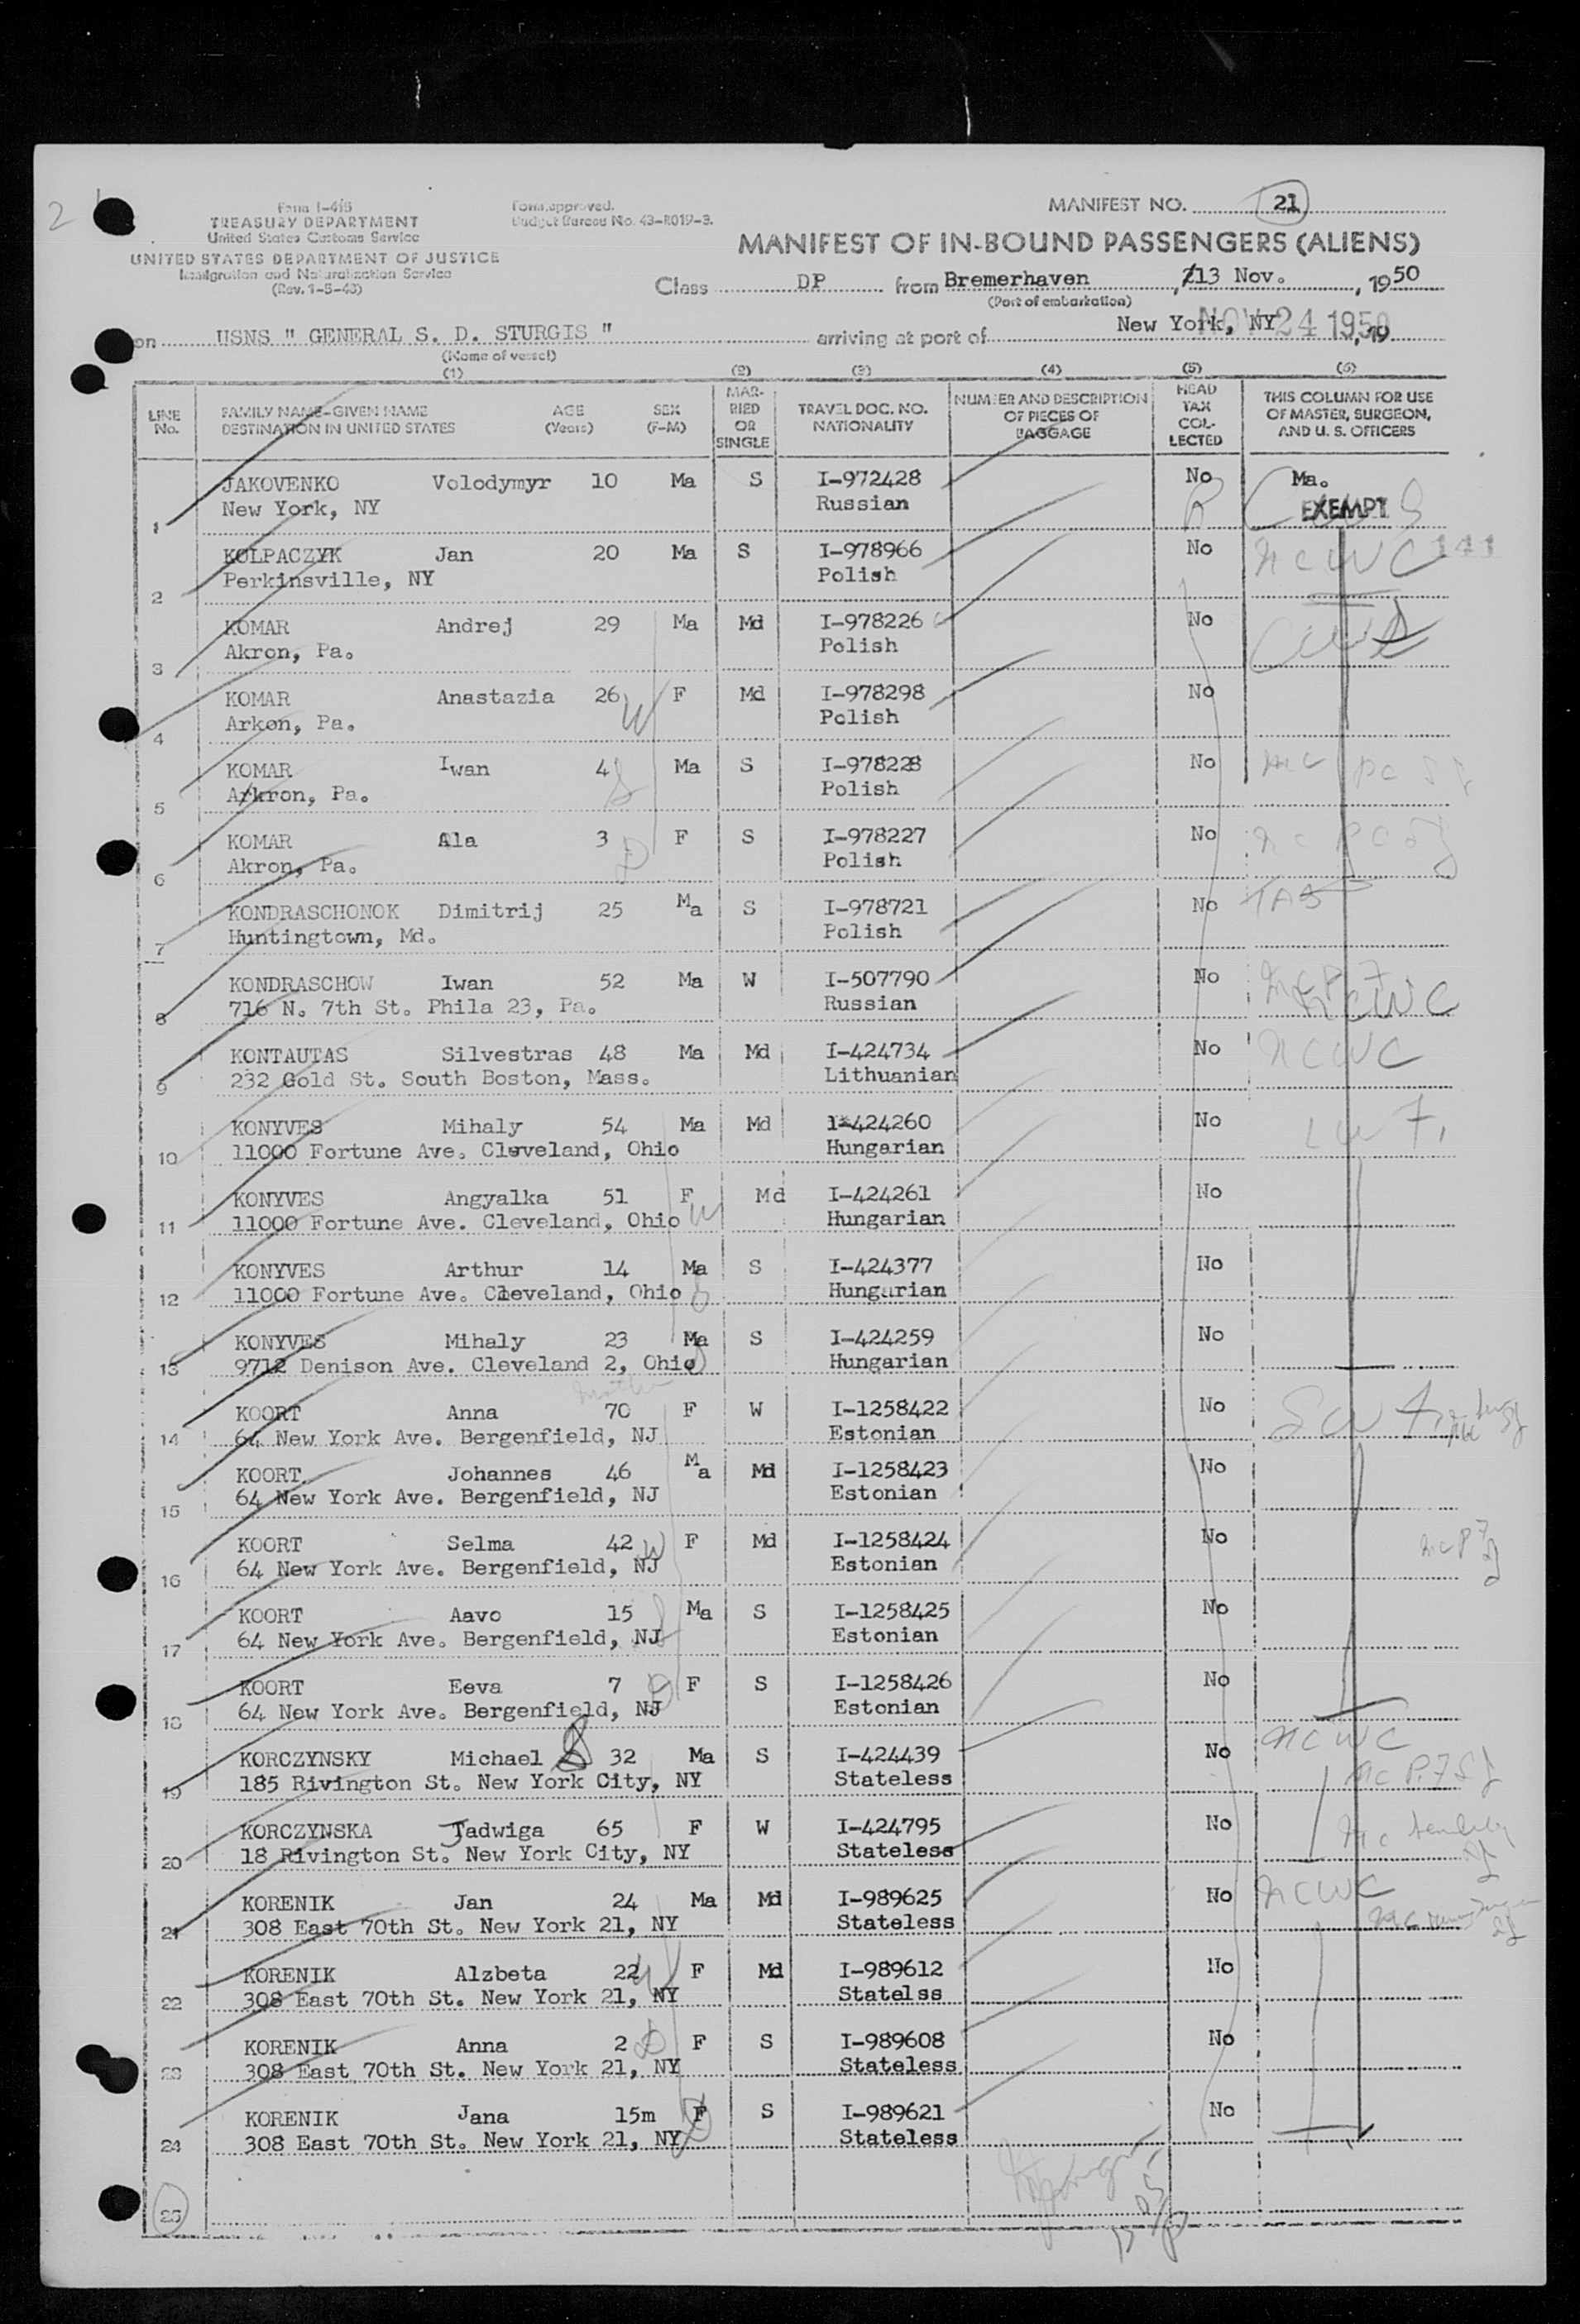 2
Form I-415
TREASURY DEPARTMENT
United States Customs Service
UNITED STATES DEPARTMENT OF JUSTICE
Immigration and Naturalization Service
(Rev. 1-5-43)
Form approved.
Budget Bureau No. 43-R019-3.
MANIFEST NO. 21
MANIFEST OF IN-BOUND PASSENGERS (ALIENS)
Class DP from Bremerhaven, 13 Nov., 1950
(Port of embarkation)
on USNS " GENERAL S. D. STURGIS " arriving at port of New York, NY NOV 24 1950, 19
(Name of vessel)
(1) (2) (3) (4) (5) (6)
LINE No. FAMILY NAME-GIVEN NAME DESTINATION IN UNITED STATES AGE (Years) SEX (F-M) MARRIED OR SINGLE TRAVEL DOC. NO. NATIONALITY NUMBER AND DESCRIPTION OF PIECES OF BAGGAGE HEAD TAX COLLECTED THIS COLUMN FOR USE OF MASTER, SURGEON, AND U. S. OFFICERS
JAKOVENKO Volodymyr 10 Ma S I-972428 No Ma.
1 New York, NY Russian EXEMPT
KOLPACZYK Jan 20 Ma S I-978966 No NCWC 141
2 Perkinsville, NY Polish
KOMAR Andrej 29 Ma Md I-978226 No
3 Akron, Pa. Polish
KOMAR Anastazia 26 W F Md I-978298 No
4 Arkon, Pa. Polish
KOMAR Iwan 4 S Ma S I-978228 No
5 Arkron, Pa. Polish
KOMAR Ala 3 D F S I-978227 No
6 Akron, Pa. Polish
KONDRASCHONOK Dimitrij 25 Ma S I-978721 No
7 Huntingtown, Md. Polish
KONDRASCHOW Iwan 52 Ma W I-507790 No
8 716 N. 7th St. Phila 23, Pa. Russian NCWC
KONTAUTAS Silvestras 48 Ma Md I-424734 No NCWC
9 232 Gold St. South Boston, Mass. Lithuanian
KONYVES Mihaly 54 Ma Md I-424260 No
10 11000 Fortune Ave. Cleveland, Ohio Hungarian
KONYVES Angyalka 51 F Md I-424261 No
11 11000 Fortune Ave. Cleveland, Ohio W Hungarian
KONYVES Arthur 14 Ma S I-424377 No
12 11000 Fortune Ave. Cleveland, Ohio S Hungarian
KONYVES Mihaly 23 Ma S I-424259 No
13 9712 Denison Ave. Cleveland 2, Ohio Hungarian
mother
KOORT Anna 70 F W I-1258422 No
14 64 New York Ave. Bergenfield, NJ Estonian
KOORT. Johannes 46 Ma Md I-1258423 No
15 64 New York Ave. Bergenfield, NJ Estonian
KOORT Selma 42 W F Md I-1258424 No
16 64 New York Ave. Bergenfield, NJ Estonian
KOORT Aavo 15 S Ma S I-1258425 No
17 64 New York Ave. Bergenfield, NJ Estonian
KOORT Eeva 7 D F S I-1258426 No
18 64 New York Ave. Bergenfield, NJ Estonian
KORCZYNSKY Michael S 32 Ma S I-424439 No NCWC
19 185 Rivington St. New York City, NY Stateless
KORCZYNSKA Jadwiga 65 F W I-424795 No
20 18 Rivington St. New York City, NY Stateless
KORENIK Jan 24 Ma Md I-989625 No NCWC
21 308 East 70th St. New York 21, NY Stateless
KORENIK Alzbeta 22 W F Md I-989612 No
22 308 East 70th St. New York 21, NY Statelss
KORENIK Anna 2 D F S I-989608 No
23 308 East 70th St. New York 21, NY Stateless
KORENIK Jana 15m F S I-989621 No
24 308 East 70th St. New York 21, NY Stateless
25